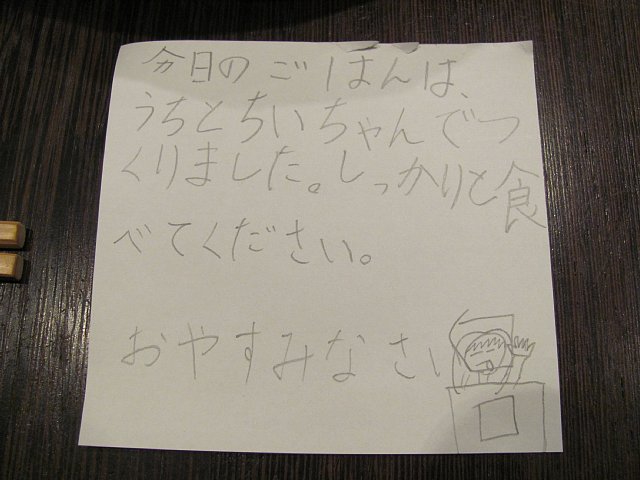 今日のごはんは、
うちとちいちゃんでつ
くりました。しっかりと食
べてください。
おやすみなさい